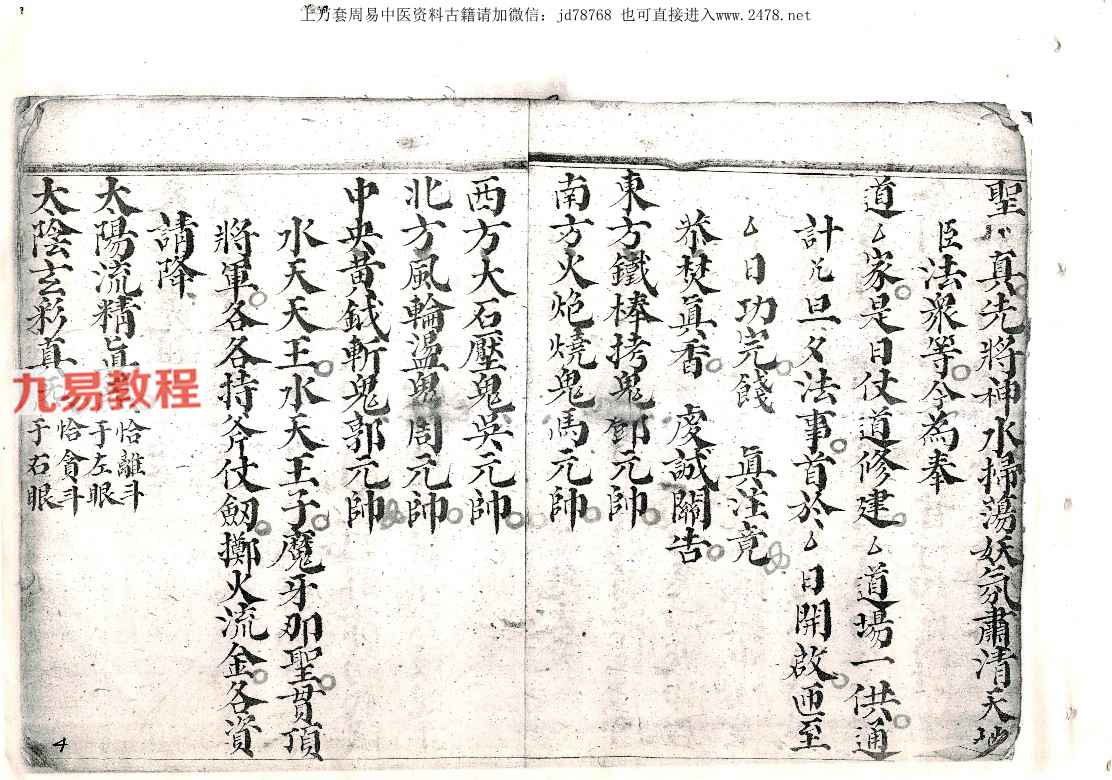 上万套周易中医资料古籍请加微信：jd78768 也可直接进入www.2478.net
聖真先將神水掃蕩妖氛肅清天地
臣法衆等今為奉
道厶家是日仗道修建厶道場一供通
計旦夕法事首於厶日開啟迊至
厶日功完餞 真注竟
恭焚眞香 虔誠關告
東方鐵棒拷鬼鄧元帥
南方火炮燒鬼馬元帥
西方大石壓鬼吳元帥
北方風輪溫鬼周元帥
中央黃鉞斬鬼郭元帥
水天天王水天王子魔牙那聖貫頂
將軍各各持斧仗劔擲火流金各資
請降
太陽流精眞
恰離斗
于左眼
太陰玄彩真
恰貪斗
于右眼
九易教程
4